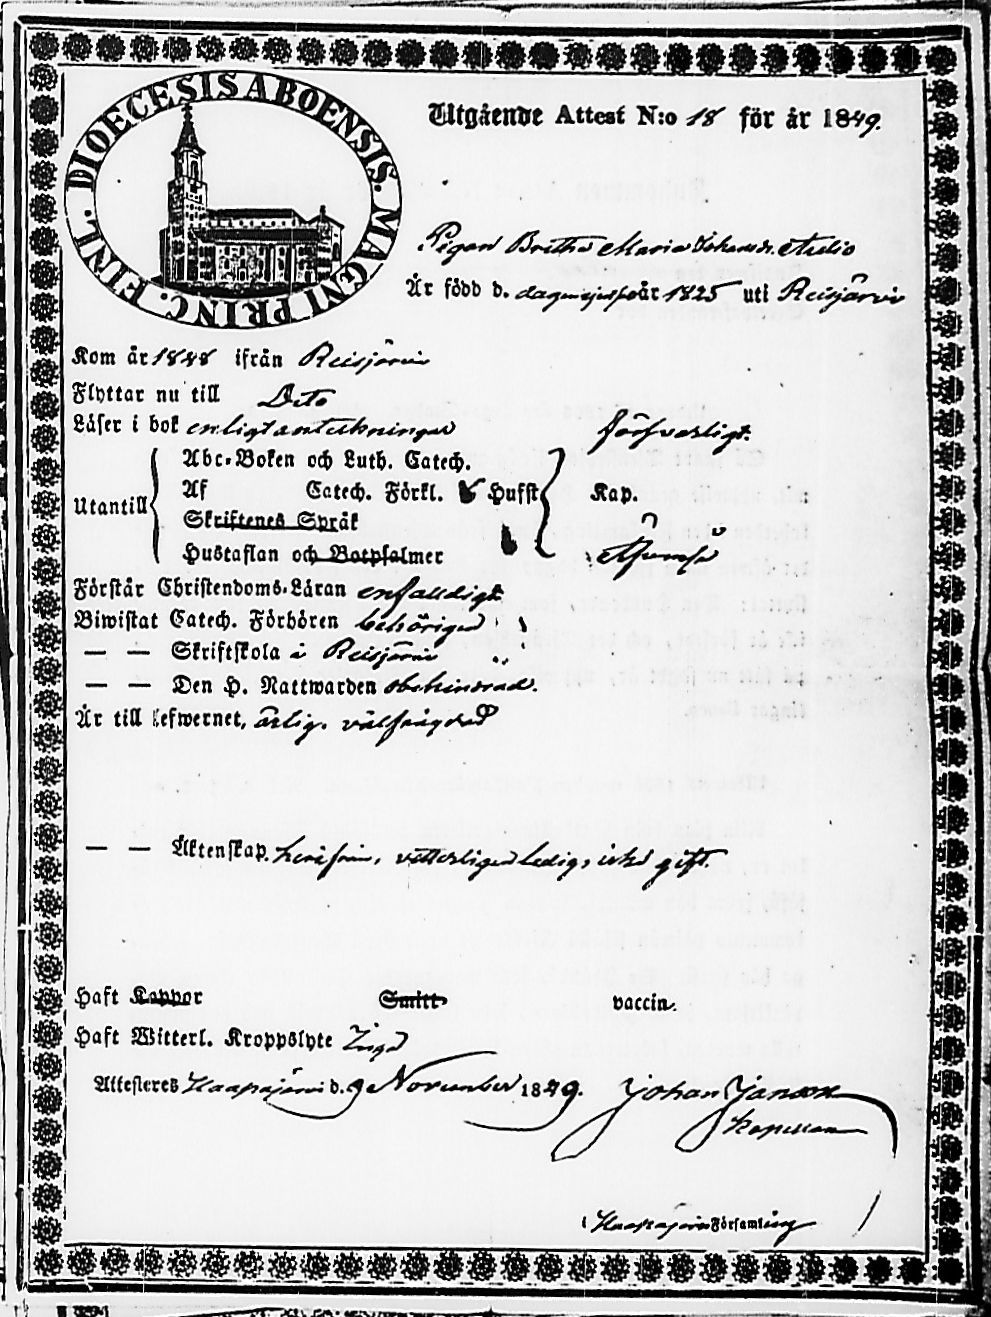 DIOECESIS ABOENSIS. MAGNI PRINC. FINL.
Utgående Attest N:o 18 för år 1849.
Pigan Britha Maria Johansdr
Är född d. år 1825 uti Reisjärvi
Kom år 1848 ifrån Reisjärvi
Flyttar nu till Dito
Läser i bok enligt anteckningar försvarligt.
Utantill
Abc-Boken och Luth. Catech.
Af Catech. Förkl. Hufst Kap.
Skriftenes Språk
Hustaflan och Botpsalmer
Förstår Christendoms-Läran enfaldigt
Biwistat Catech. Förhören behörigen
— — Skriftskola i Reisjärvi
— — Den H. Nattwarden obehindrad.
Är till lefwernet, ärlig, välfrägdad
— — Äktenskap, veterligen ledig, icke gift.
Haft Koppor Smitt vaccin.
Haft Witterl. Kroppslyte Inga
Attesteras Haapajärvi d. 9 November 1849. Johan
Kapellan
Haapajärvi Församling